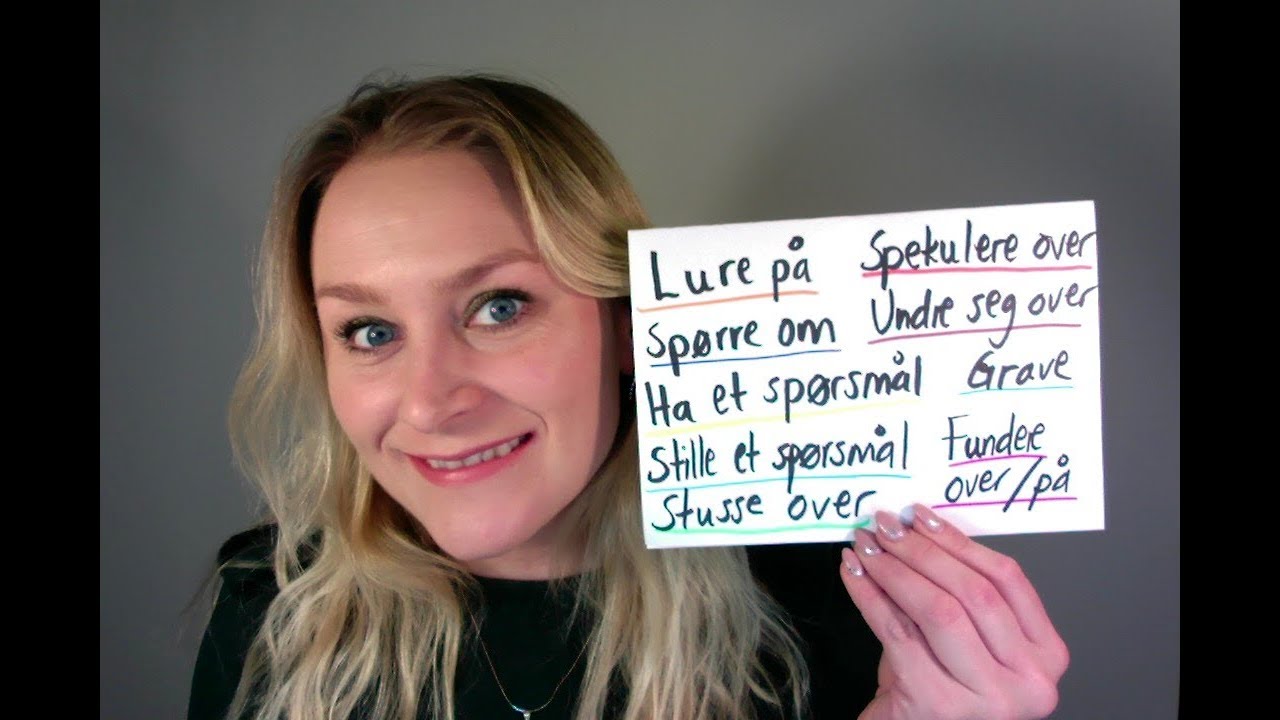 Lure på
Spørre om
Ha et spørsmål
Stille et spørsmål
Stusse over
Spekulere over
Undre seg over
Grave
Fundere
over/på